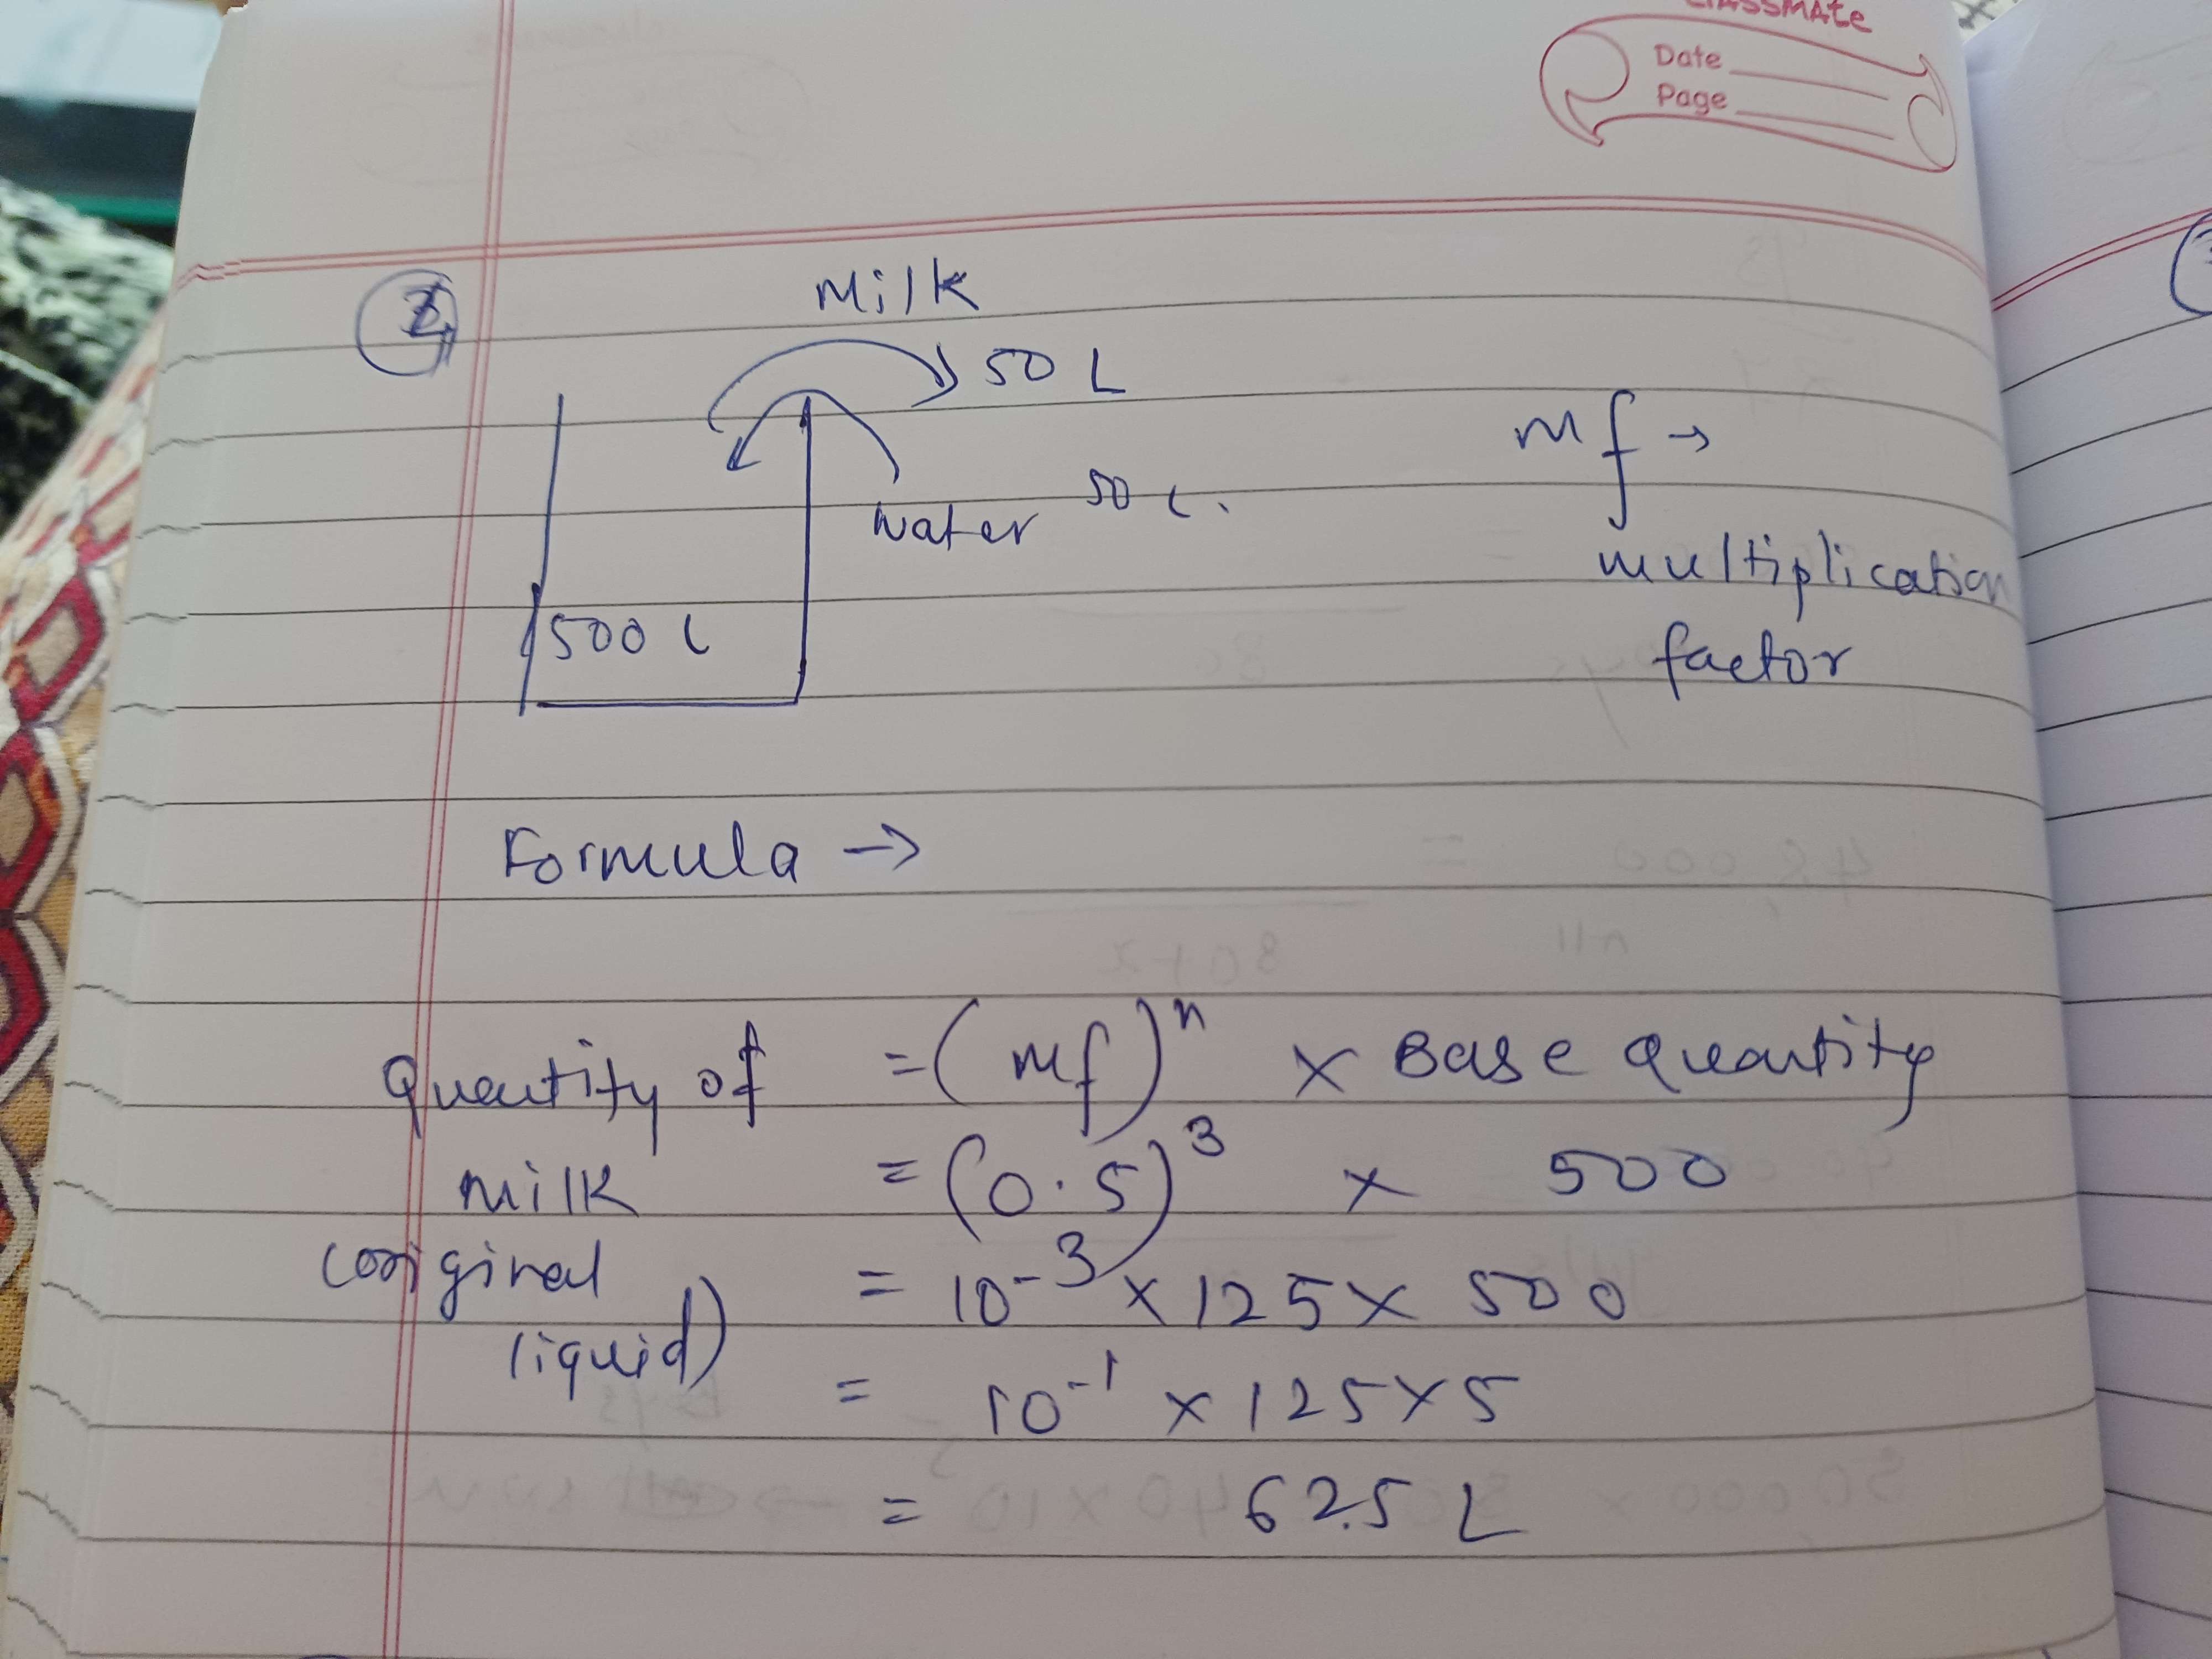 CLASSMATE
Date
Page
Milk
50 L
water 50 L.
500 L
mf →
multiplication
factor
Formula →
Quantity of = (mf)ⁿ × Base quantity
milk = (0.5)³ × 500
(original = 10⁻³ × 125 × 500
liquid) = 10⁻¹ × 125 × 5
= 62.5 L